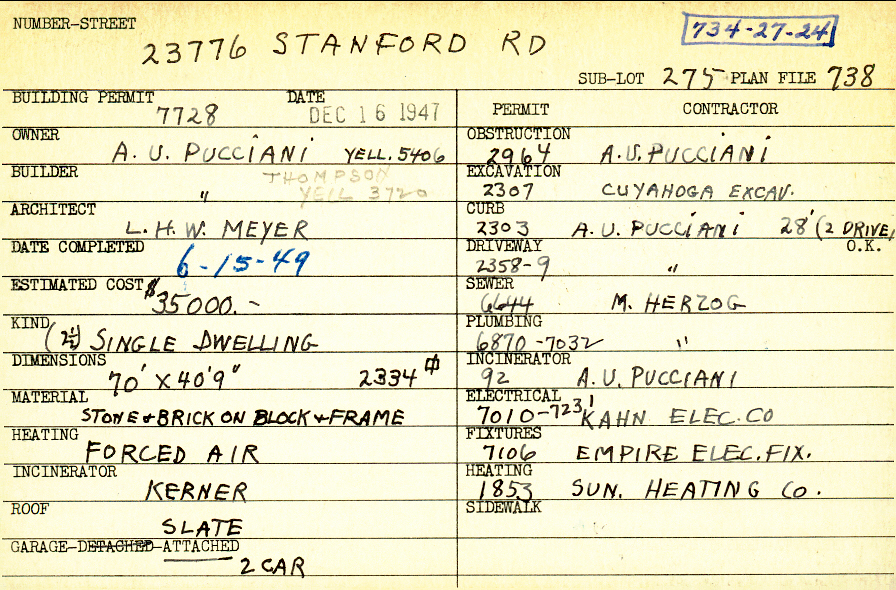 NUMBER-STREET
23776 STANFORD RD
734-27-24
SUB-LOT 275 PLAN FILE 738
BUILDING PERMIT DATE
7728 DEC 16 1947
OWNER
A. U. PUCCIANI YELL. 5406
BUILDER THOMPSON
" YELL 3720
ARCHITECT
L. H. W. MEYER
DATE COMPLETED
6-15-49
ESTIMATED COST
$35000.-
KIND
(2½) SINGLE DWELLING
DIMENSIONS
70' X 40'9" 2334
MATERIAL
STONE + BRICK ON BLOCK + FRAME
HEATING
FORCED AIR
INCINERATOR
KERNER
ROOF
SLATE
GARAGE-DETACHED-ATTACHED
2 CAR
PERMIT CONTRACTOR
OBSTRUCTION
2964 A.U. PUCCIANI
EXCAVATION
2307 CUYAHOGA EXCAV.
CURB
2303 A. U. PUCCIANI 28' (2 DRIVE)
DRIVEWAY O.K.
2358-9 "
SEWER
6644 M. HERZOG
PLUMBING
6870-7032 "
INCINERATOR
92 A. U. PUCCIANI
ELECTRICAL
7010-7231 KAHN ELEC. CO
FIXTURES
7106 EMPIRE ELEC. FIX.
HEATING
1853 SUN. HEATING CO.
SIDEWALK